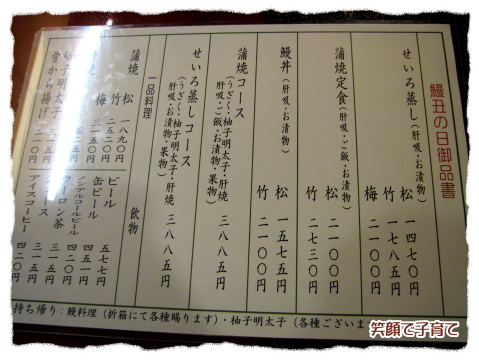 鰻丑の日御品書
せいろ蒸し(肝吸・お漬物)
松 一四七〇円
竹 一七八五円
梅 二一〇〇円
蒲焼定食(肝吸・ご飯・お漬物)
松 二一〇〇円
竹 二七三〇円
鰻丼(肝吸・お漬物)
松 一五七五円
竹 二一〇〇円
蒲焼コース
(うざく・柚子明太子・肝焼
肝吸・ご飯・お漬物・果物)
三八八五円
せいろ蒸しコース
(うざく・柚子明太子・肝焼
肝吸・お漬物・果物)
三八八五円
一品料理
蒲焼
松 一八九〇円
竹 二五二〇円
梅 三一五〇円
肝焼
柚子明太子
骨から揚げ 三一五円
飲物
ビール 五七七円
缶ビール 四五一円
ノンアルコールビール
ウーロン茶
アイスコーヒー 四二〇円
持ち帰り:鰻料理(折箱にて各種賜ります)・柚子明太子(各種ございま
笑顔で子育て